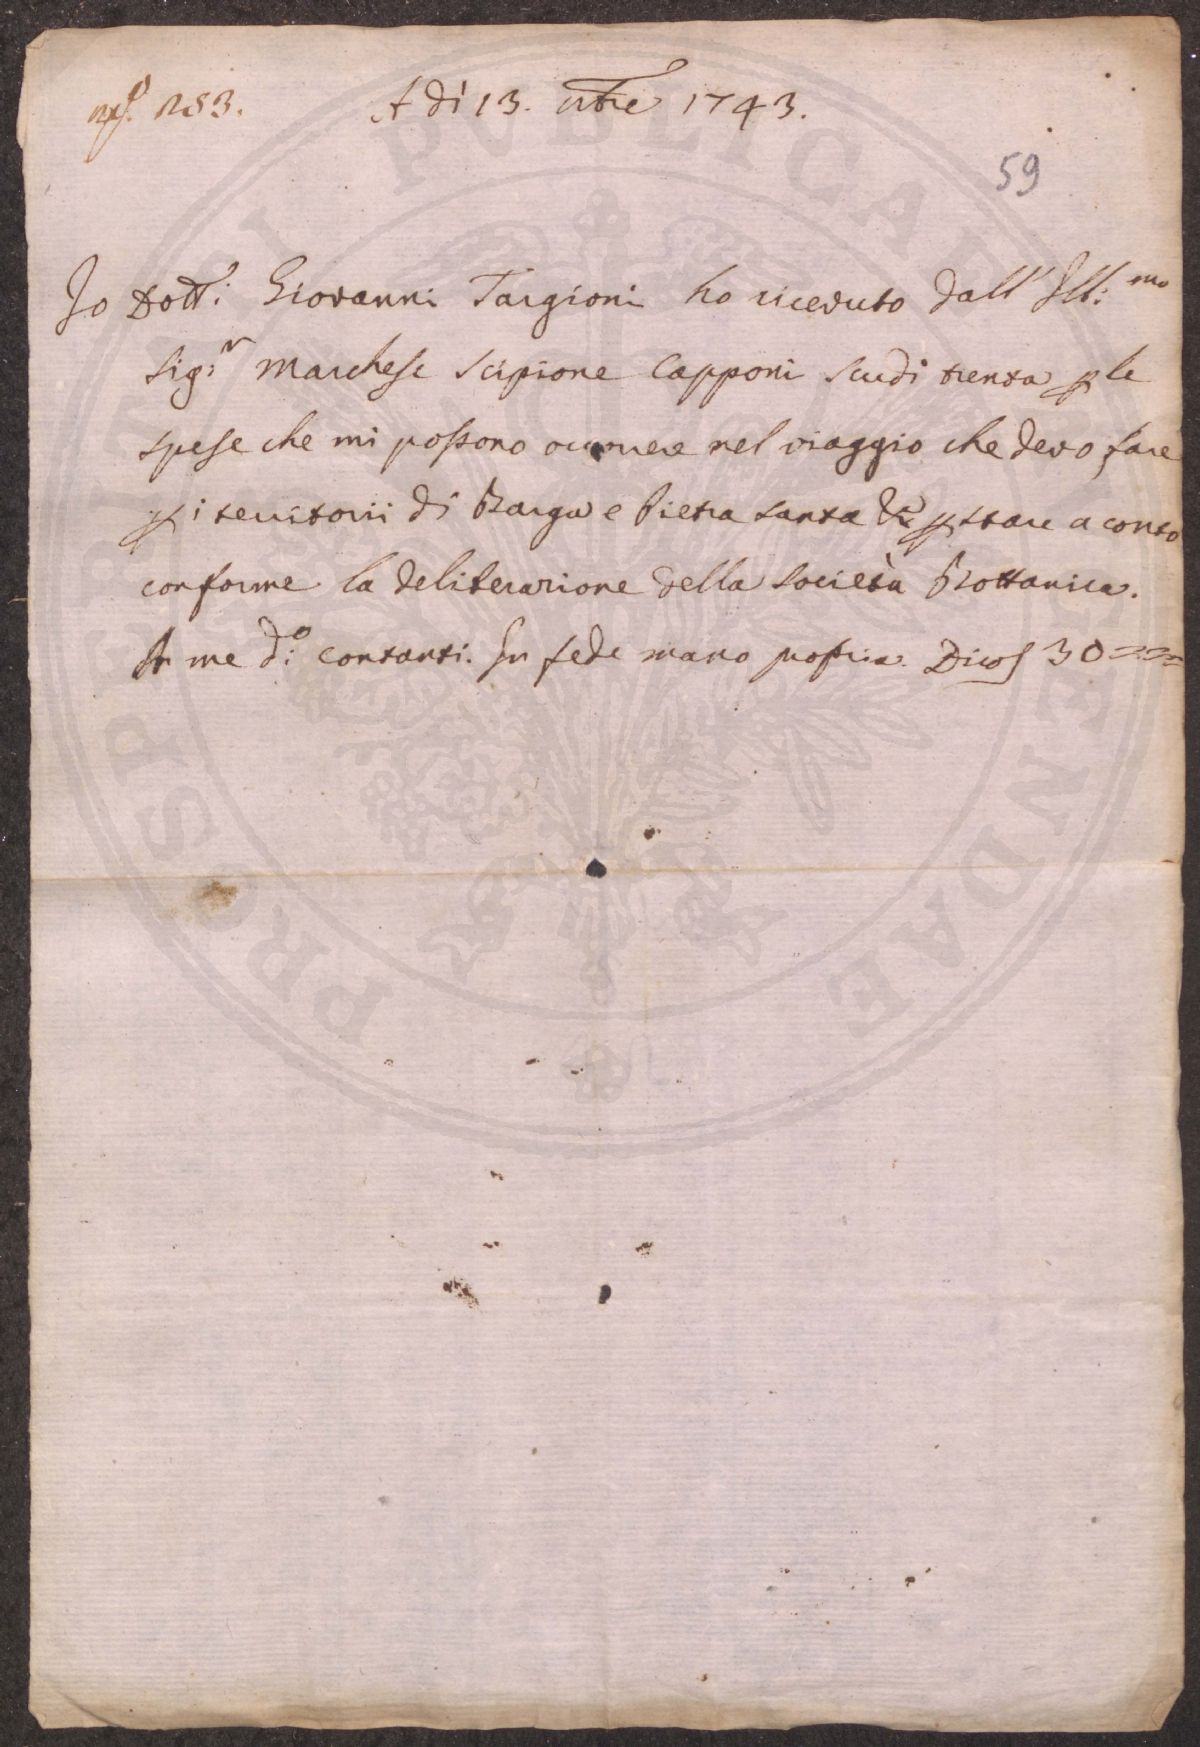 n.º 253.
A dì 13. 7bre 1743.
59
Io Dott.: Giovanni Targioni ho ricevuto dall' Ill:mo
Sig:r Marchese Scipione Capponi scudi trenta p le
spese che mi possono occorrere nel viaggio che devo fare
p i territorii di Barga e Pietra Santa &c p stare a conto
conforme la deliberazione della Società Bottanica.
A me d:o contanti. In fede mano propria. Dico 30
PROSPERITATI PVBLICAE AVGENDAE